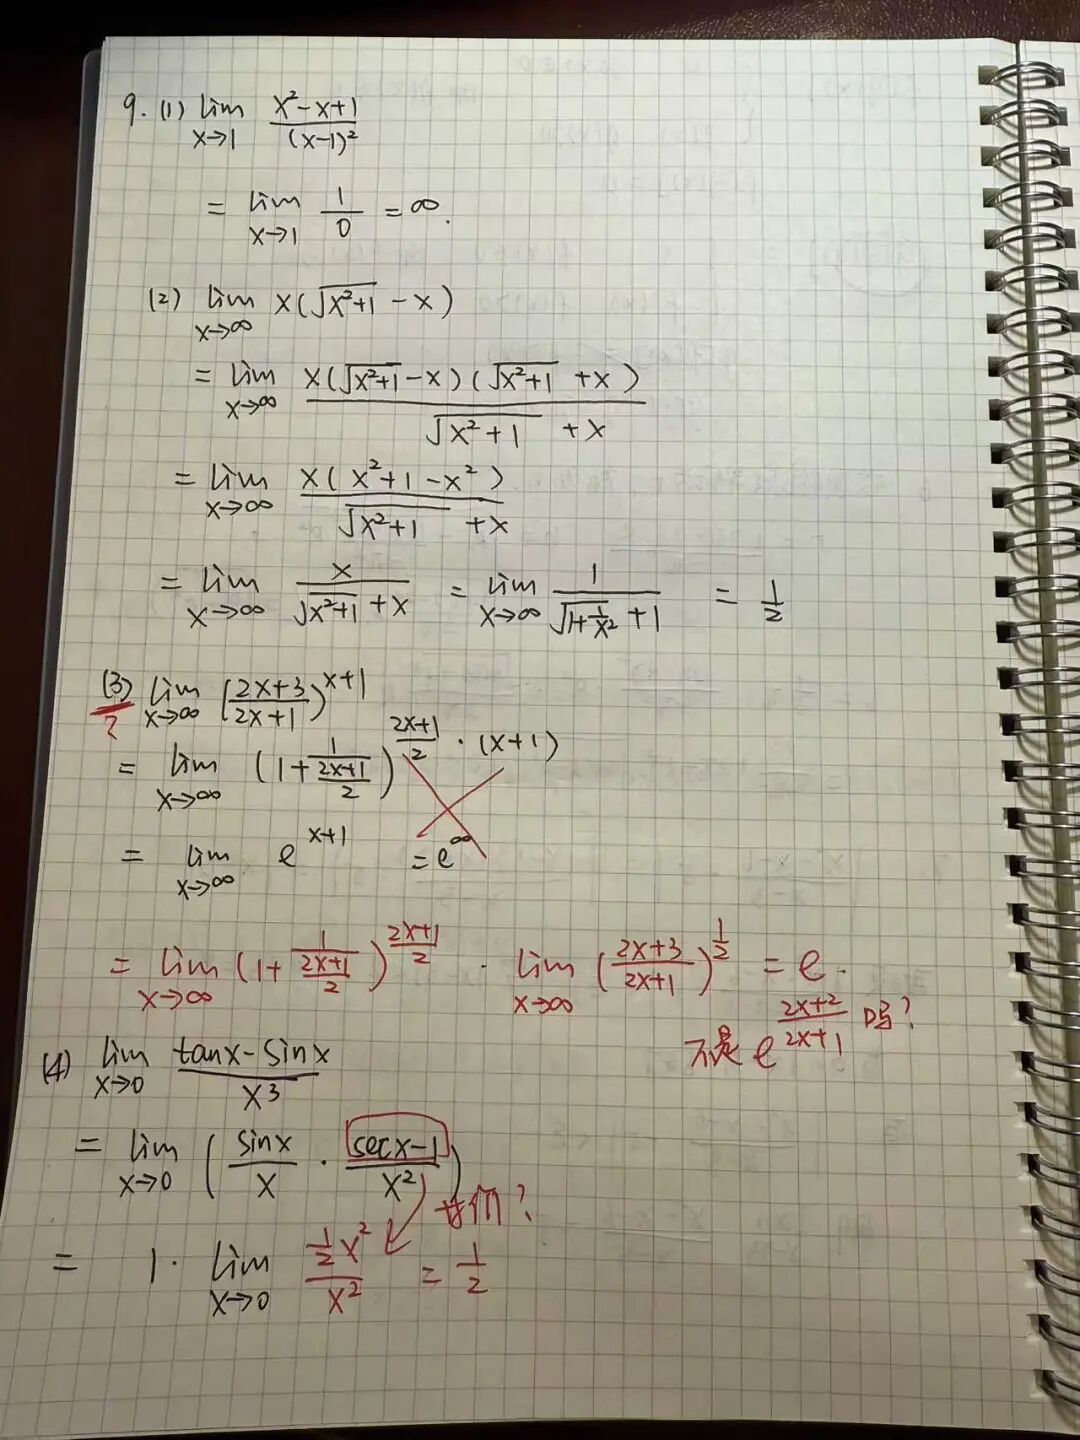 9. (1) lim x→1 (x²-x+1)/((x-1)²)
= lim x→1 1/0 = ∞.
(2) lim x→∞ x(√(x²+1) - x)
= lim x→∞ (x(√(x²+1) - x)(√(x²+1) + x))/(√(x²+1) + x)
= lim x→∞ (x(x²+1-x²))/(√(x²+1) + x)
= lim x→∞ x/(√(x²+1) + x) = lim x→∞ 1/(√(1+1/x²) + 1) = 1/2
(3) lim x→∞ ((2x+3)/(2x+1))^(x+1)
?
= lim x→∞ (1 + 1/((2x+1)/2))^((2x+1)/2 · (x+1))
= lim x→∞ e^(x+1) = e^∞
= lim x→∞ (1 + 1/((2x+1)/2))^((2x+1)/2) · lim x→∞ ((2x+3)/(2x+1))^(1/2) = e.
不是 e^((2x+2)/(2x+1)) 吗?
(4) lim x→0 (tanx - sinx)/x³
= lim x→0 (sinx/x · (secx-1)/x²)
等价?
= 1 · lim x→0 (1/2 x²)/x² = 1/2